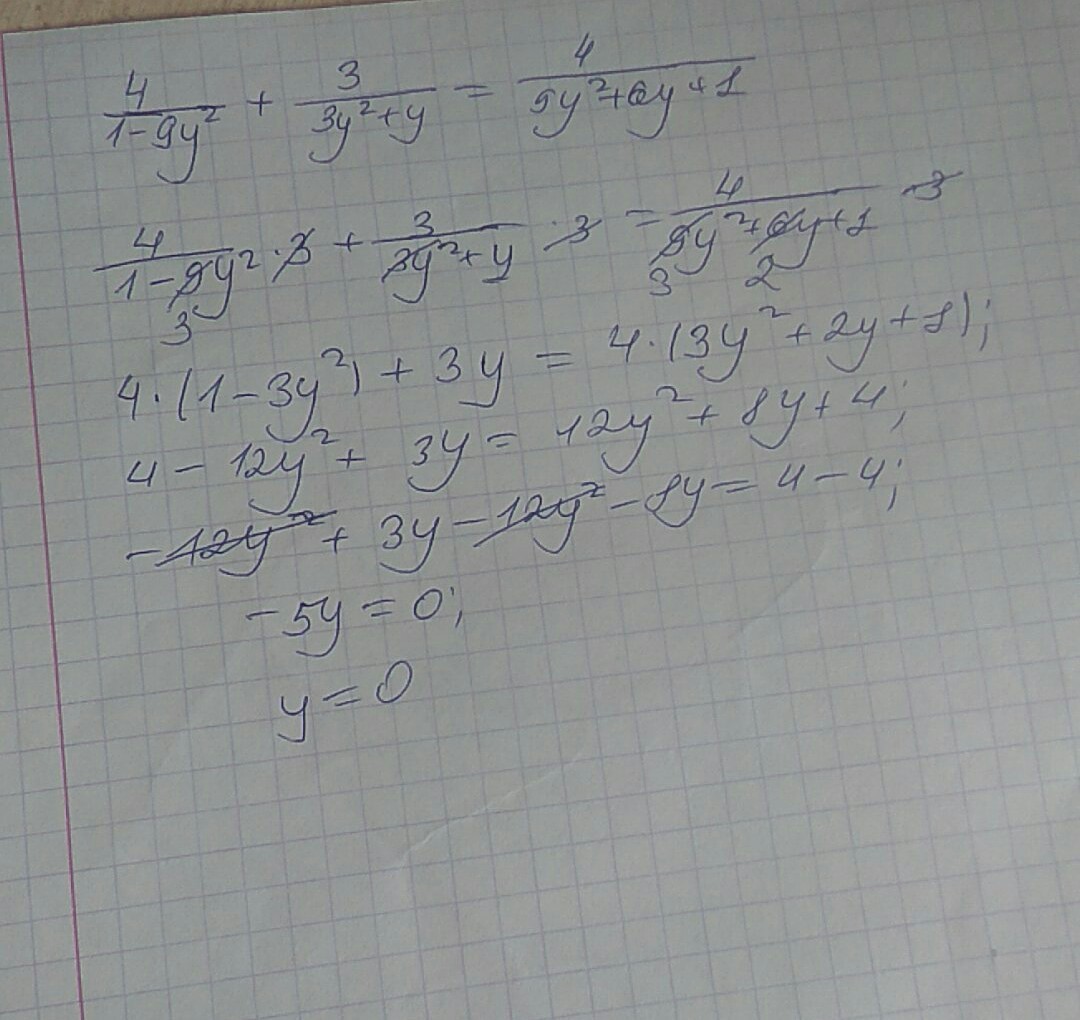 4/(1-9y²) + 3/(3y²+y) = 4/(9y²+6y+1)
4/(1-9y²) · 3 + 3/(3y²+y) · 3 = 4/(9y²+6y+1) 3
3 3 2
4·(1-3y²) + 3y = 4·(3y²+2y+1);
4 - 12y² + 3y = 12y² + 8y + 4;
-12y² + 3y - 12y² - 8y = 4 - 4;
-5y = 0;
y = 0